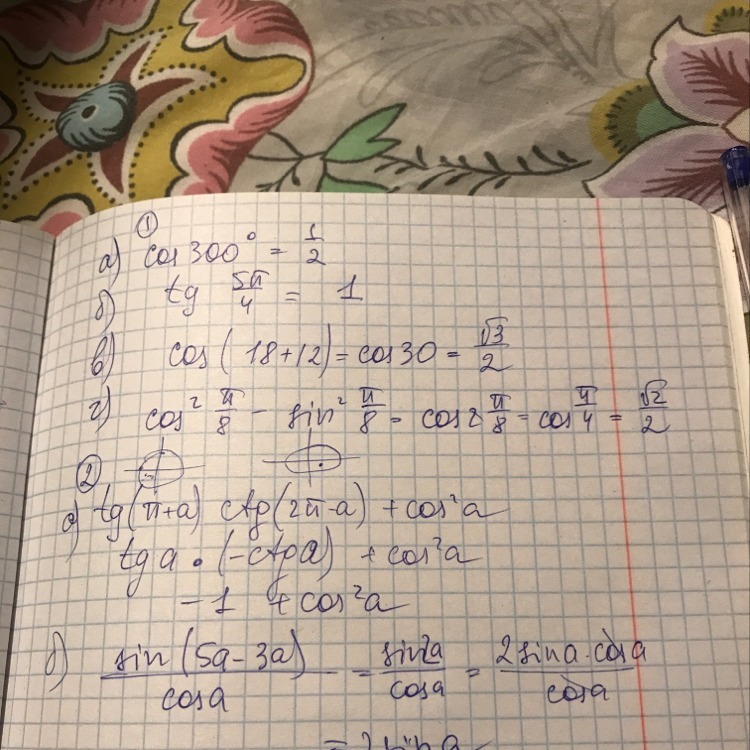 ①
а) cos 300° = 1/2
б) tg 5π/4 = 1
в) cos(18+12) = cos30 = √3/2
г) cos² π/8 - sin² π/8 = cos2 π/8 = cos π/4 = √2/2
②
а) tg(π+a) ctg(2π-a) + cos²a
tg a · (-ctg a) + cos²a
-1 + cos²a
б) sin(5a-3a)/cosa = sin2a/cosa = 2sina·cosa/cosa
= 2sina